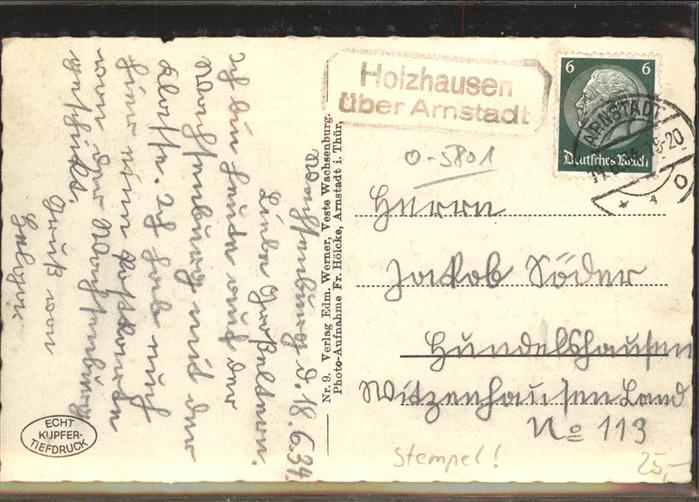 Wachsenburg d. 18.6.34.
Liebe Großeltern.
Ich bin heute auf der
Wachsenburg mit der
Klasse. Ich hab euch
hier eine Postkarte
von der Wachsenburg
geschickt.
Gruß von
Holzhausen
über Arnstadt
6 6
Deutsches Reich
ARNSTADT
8-20
0-5801
Herrn
Jakob Söder
Hundelshausen
Witzenhausen Land
No 113
Stempel!
25,-
Nr. 9. Verlag Edm. Werner, Veste Wachsenburg.
Photo-Aufnahme Fr. Hölcke, Arnstadt i. Thür.
ECHT
KUPFER-
TIEFDRUCK